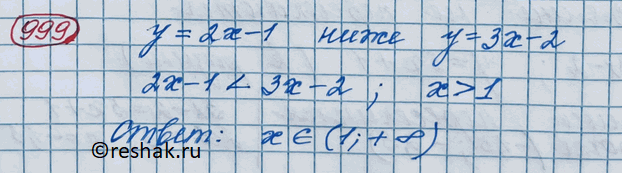 999. y = 2x-1 ниже y = 3x-2
2x-1 < 3x-2 ; x > 1
Ответ: x ∈ (1; +∞)
©reshak.ru